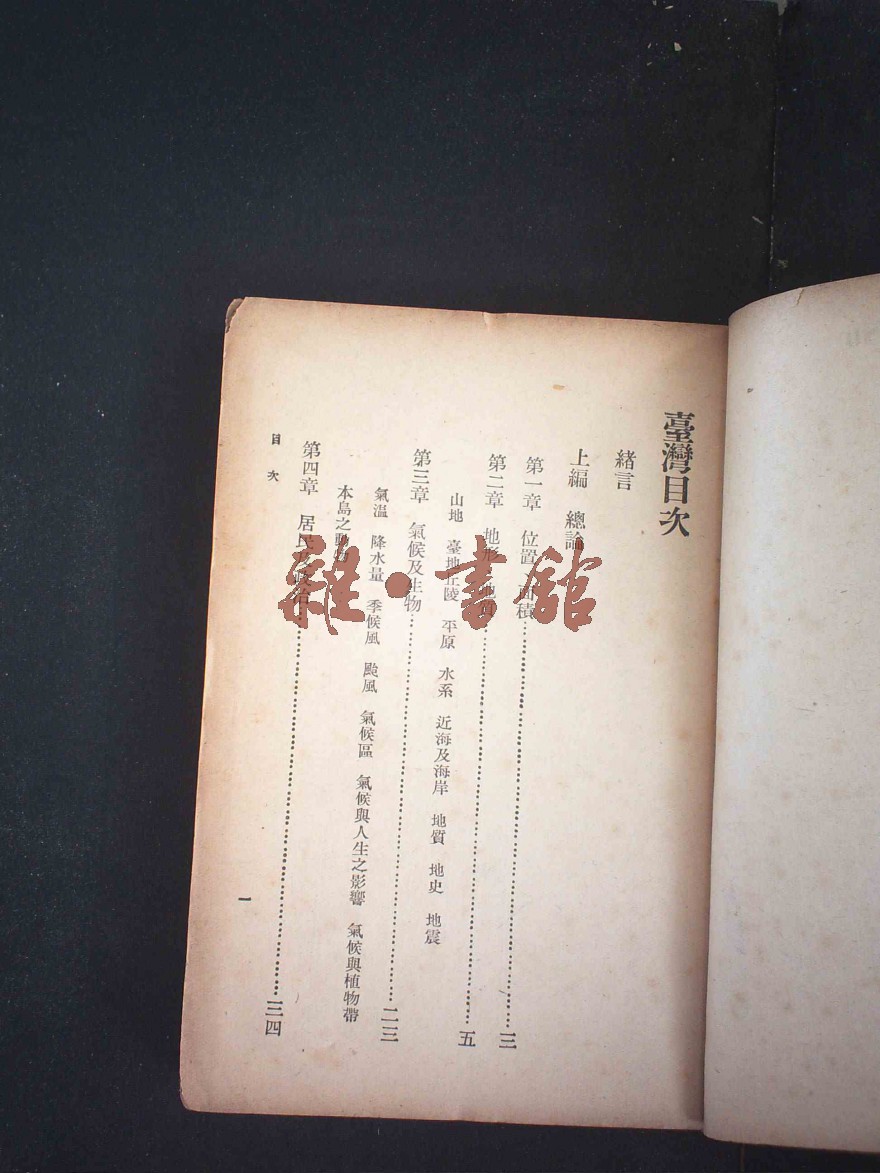 臺灣目次
緒言
上編 總論
第一章 位置 面積……三
第二章 地形 地質……五
山地 臺地丘陵 平原 水系 近海及海岸 地質 地史 地震
第三章 氣候及生物……二三
氣溫 降水量 季候風 颱風 氣候區 氣候與人生之影響 氣候與植物帶
本島之動物
第四章 居民及政治……三四
目次
一
雜·書館